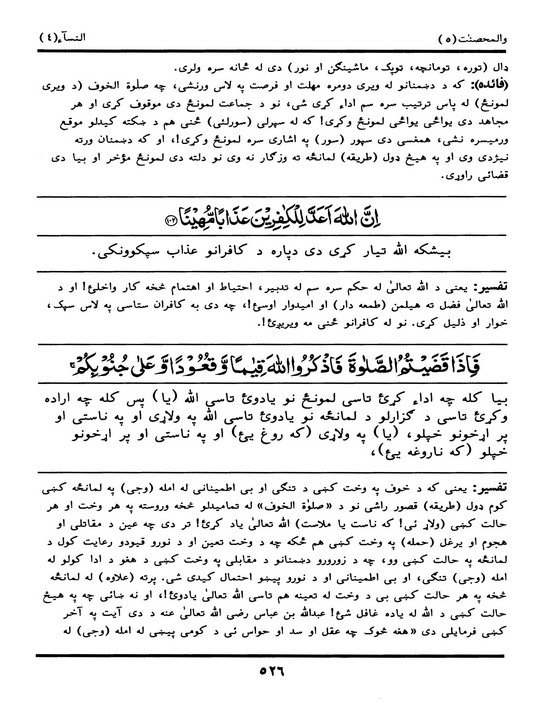 والمحصنٰت (٥)
النسآء (٤)
ډال (توره، تومانچه، توپک، ماشينګن او نور) دی له ځانه سره ولری.
(فائده): که د دښمنانو له ویری دومره مهلت او فرصت په لاس ورنشی، چه صلٰوة الخوف (د ویری
لمونځ) له پاس ترتیب سره سم اداء کړی شی، نو د جماعت لمونځ دی موقوف کړی او هر
مجاهد دی یواځی یواځی لمونځ وکړی! که له سپرلی (سورلئی) ځنی هم د ښکته کیدلو موقع
ورمیسره نشی، همغسی دی سپور (سور) په اشاری سره لمونځ وکړی!، او که دښمنان ورته
نیژدی وی او په هیڅ ډول (طریقه) لمانځه ته وزګار نه وی نو دلته دی لمونځ مؤخر او بیا دی
قضائی راوړی.
اِنَّ اللّٰهَ اَعَدَّ لِلْكٰفِرِيْنَ عَذَابًا مُّهِيْنًا ﴿١٠٢﴾
بیشکه الله تیار کړی دی دپاره د کافرانو عذاب سپکوونکی.
تفسیر: یعنی د الله تعالیٰ له حکم سره سم له تدبیر، احتیاط او اهتمام څخه کار واخلئ! او د
الله تعالیٰ فضل ته هیلمن (طمعه دار) او امیدوار اوسئ!، چه دی به کافران ستاسی په لاس سپک،
خوار او ذلیل کړی. نو له کافرانو ځنی مه ویریږئ!.
فَاِذَا قَضَيْتُمُ الصَّلٰوةَ فَاذْكُرُوا اللّٰهَ قِيٰمًا وَّقُعُوْدًا وَّعَلٰى جُنُوْبِكُمْ ۚ
بیا کله چه اداء کړئ تاسی لمونځ نو یادوئ تاسی الله (یا) پس کله چه اراده
وکړئ تاسی د ګزارلو د لمانځه نو یادوئ تاسی الله په ولاړی او په ناستی او
پر اړخونو خپلو، (یا) په ولاړی (که روغ یئ) او په ناستی او پر اړخونو
خپلو (که ناروغه یئ)،
تفسیر: یعنی که د خوف په وخت کښی د تنګی او بی اطمینانی له امله (وجی) په لمانځه کښی
کوم ډول (طریقه) قصور راشی نو د «صلوٰة الخوف» له تمامیدلو څخه وروسته په هر وخت او هر
حالت کښی (ولاړ ئی! که ناست یا ملاست) الله تعالیٰ یاد کړئ! تر دی چه عین د مقاتلی او
هجوم او یرغل (حمله) په وخت کښی هم ځکه چه د وخت تعین او د نورو قیودو رعایت کول د
لمانځه په حالت کښی وو، چه د زورورو دښمنانو د مقابلی په وخت کښی د هغو د ادا کولو له
امله (وجی) تنګی، او بی اطمینانی او د نورو پیښو احتمال کیدی شی. پرته (علاوه) له لمانځه
څخه په هر حالت کښی بی د وخت له تعینه هم تاسی الله تعالیٰ یادوئ!، او نه ښائی چه په هیڅ
حالت کښی د الله له یاده غافل شئ! عبدالله بن عباس رضی الله تعالیٰ عنه د دی آیت په آخر
کښی فرمایلی دی «هغه څوک چه عقل او سد او حواس ئی د کومی پیښی له امله (وجی) له
٥٢٦